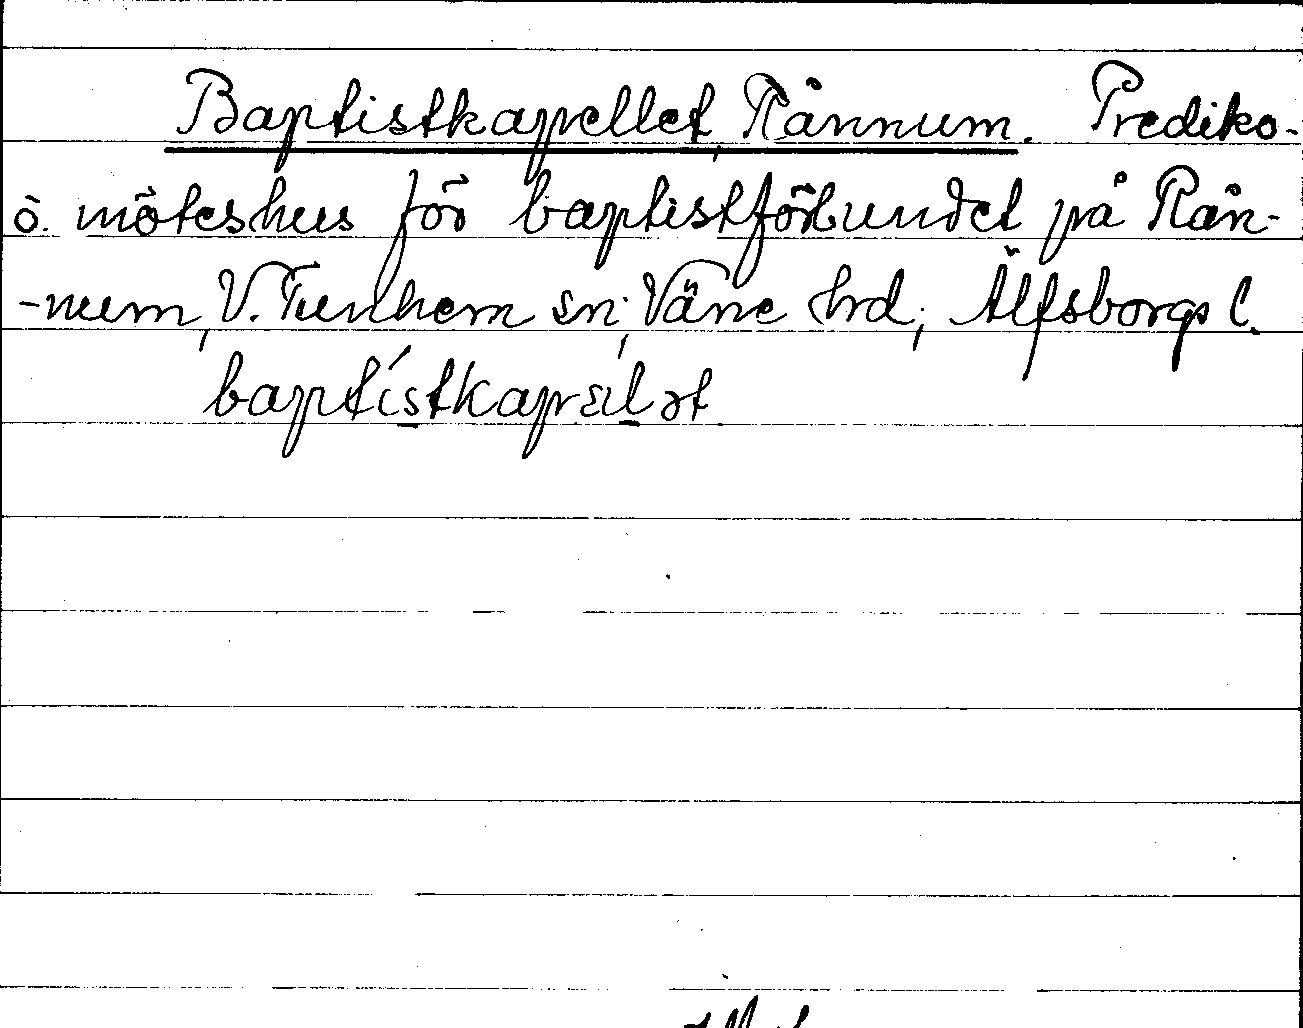 Baptistkapellet, Rånnum. Prediko-
o. möteshus för baptistförbundet på Rån-
-num, V. Tunhem sn, Väne hrd, Älfsborgs l.
baptístkapɛ́lət